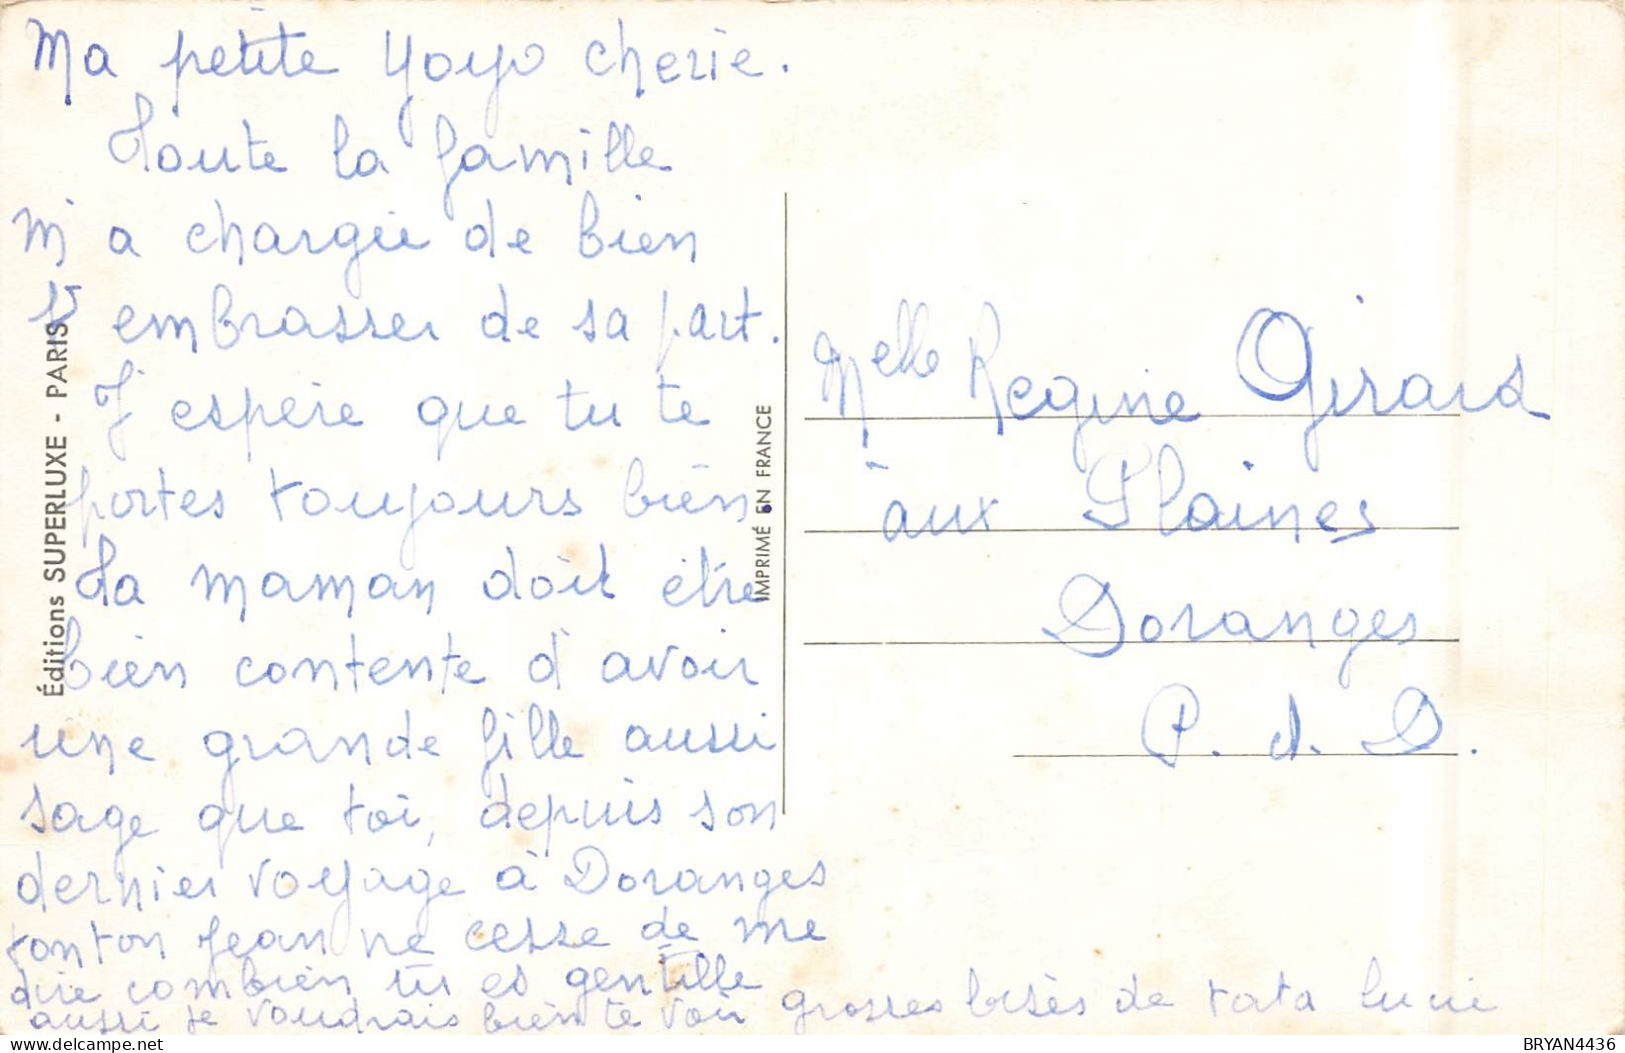 Ma petite Yoyo cherie.
Toute la famille
m'a chargée de bien
t'embrasser de sa part.
J'espère que tu te
portes toujours bien.
Ta maman doit être
bien contente d'avoir
une grande fille aussi
sage que toi, depuis son
dernier voyage à Doranges
tonton Jean ne cesse de me
dire combien tu es gentille
aussi je voudrais bien te voir grosses bises de tata Lucie
Melle Regine Girard
aux Plaines
Doranges
P. d. D.
Éditions SUPERLUXE - PARIS
IMPRIMÉ EN FRANCE
delcampe.net
BRYAN4436